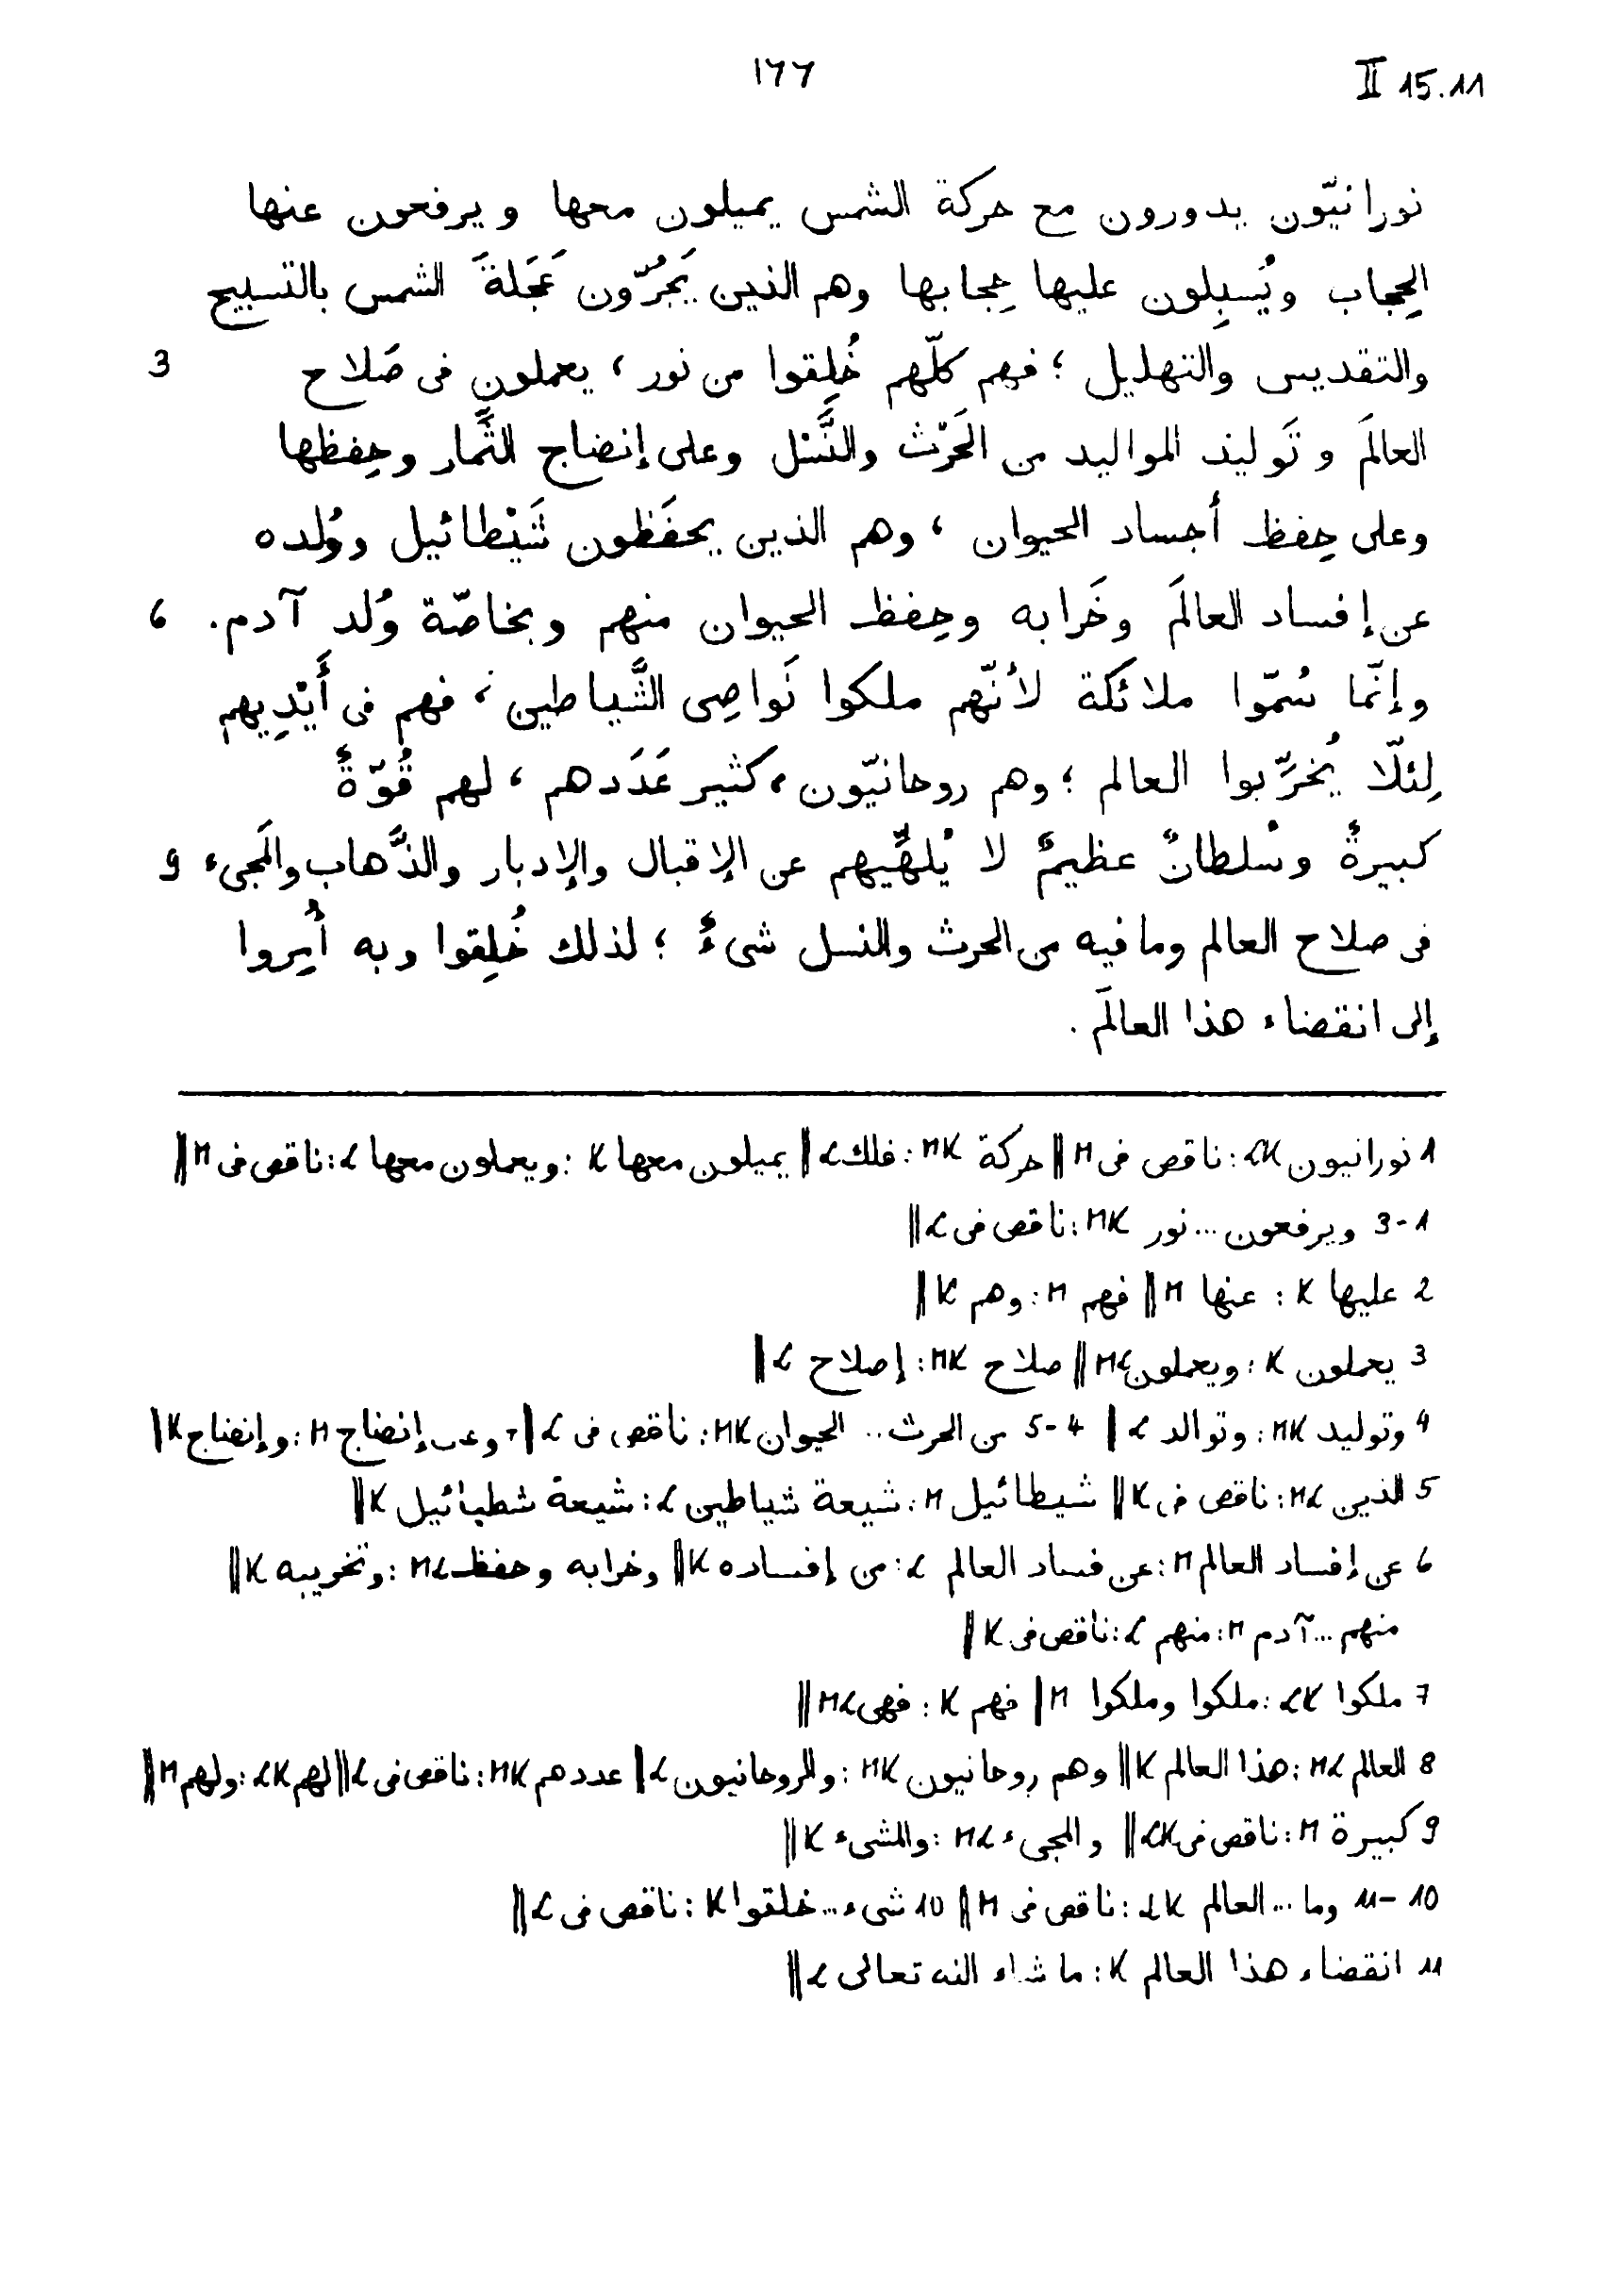 ١٦٦ II 15.11
نورانيّون يدورون مع حركة الشمس يميلون معها ويرفعون عنها
الحِجاب ويُسبِلون عليها حِجابها وهم الذين يَجُرّون عَجَلةَ الشمس بالتسبيح
والتقديس والتهليل ؛ فهم كلّهم خُلِقوا من نور ، يعملون فى صَلاح 3
العالَم وتَوليد المواليد من الحَرْث والنَّسْل وعلى إنضاج الثَّمار وحِفظها
وعلى حِفظ أجساد الحيوان ، وهم الذين يحفَظون شَيْطائيل ووُلده
عن إفساد العالَم وخَرابه وحِفظ الحيوان منهم وبخاصّة وُلد آدم . 6
وإنّما سُمّوا ملائكة لأنّهم ملكوا نَواصِى الشَّياطين ، فهم فى أَيْدِيهم
لِئلّا يُخرِّبوا العالم ؛ وهم روحانيّون ، كثير عَدَدهم ، لهم قُوّةٌ
كبيرةٌ وسُلطانٌ عظيمٌ لا يُلهِّيهم عن الإقبال والإدبار والذَّهاب والمَجىء 9
فى صلاح العالم وما فيه من الحرث والنسل شىءٌ ؛ لذلك خُلِقوا وبه أُمِروا
إلى انقضاء هذا العالَم .
1 نورانيون LK: ناقص فى M || حركة MK: فلك L || يميلون معها K: ويعملون معها L: ناقص فى M ||
1-3 ويرفعون ... نور MK: ناقص فى L ||
2 عليها K: عنها M || فهم M: وهم K ||
3 يعملون K: ويعملون ML || صلاح MK: إصلاح L ||
4 وتوليد MK: وتوالد L || 4-5 من الحرث .. الحيوان MK: ناقص فى L || وعلى إنضاج M: وإنضاج K ||
5 الذين ML: ناقص فى K || شيطائيل M: شيعة شياطين L: شيعة شطيائيل K ||
6 عن إفساد العالم M: عن فساد العالم L: من إفساده K || وخرابه وحفظ ML: وتخريبه K ||
منهم ... آدم M: منهم L: ناقص فى K ||
7 ملكوا LK: ملكوا وملكوا M || فهم K: فهى ML ||
8 العالم ML: هذا العالم K || وهم روحانيون MK: والروحانيون L || عددهم MK: ناقص فى L || لهم LK: ولهم M ||
9 كبيرة M: ناقص فى LK || والمجىء ML: والمشىء K ||
10-11 وما ... العالم LK: ناقص فى M || 10 شىء ... خلقوا K: ناقص فى L ||
11 انقضاء هذا العالم K: ما شاء الله تعالى L ||